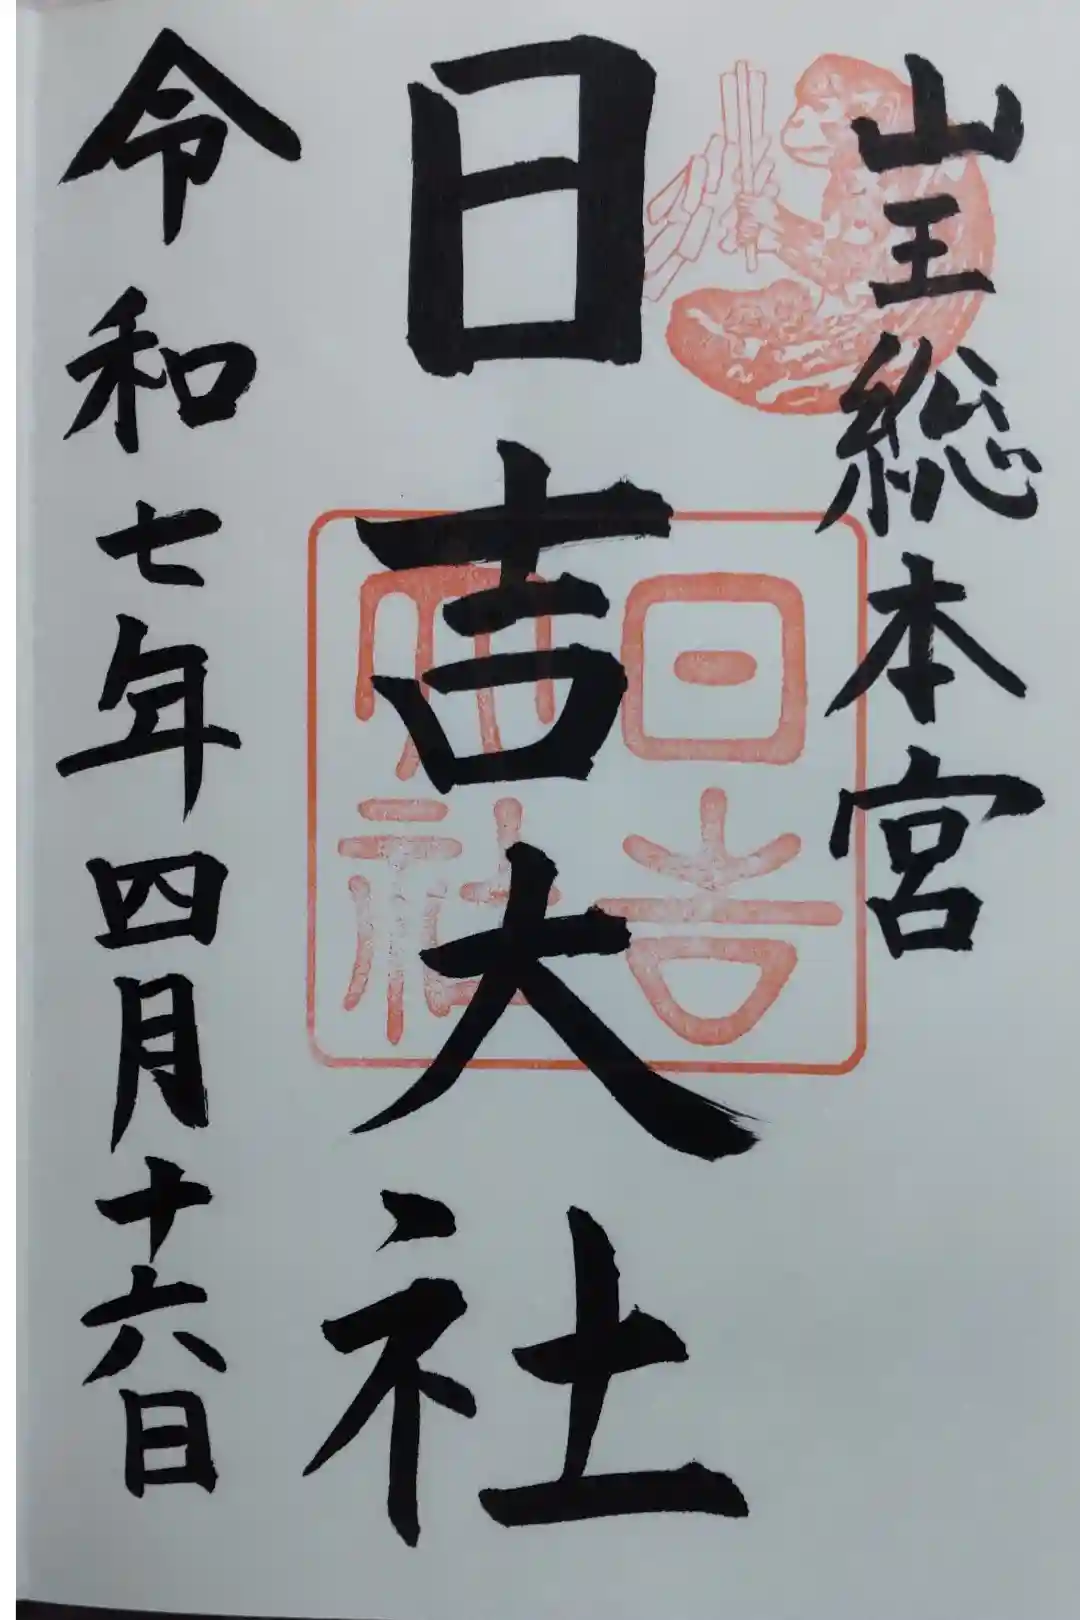 山王総本宮
日吉大社
日吉大社
令和七年四月十六日